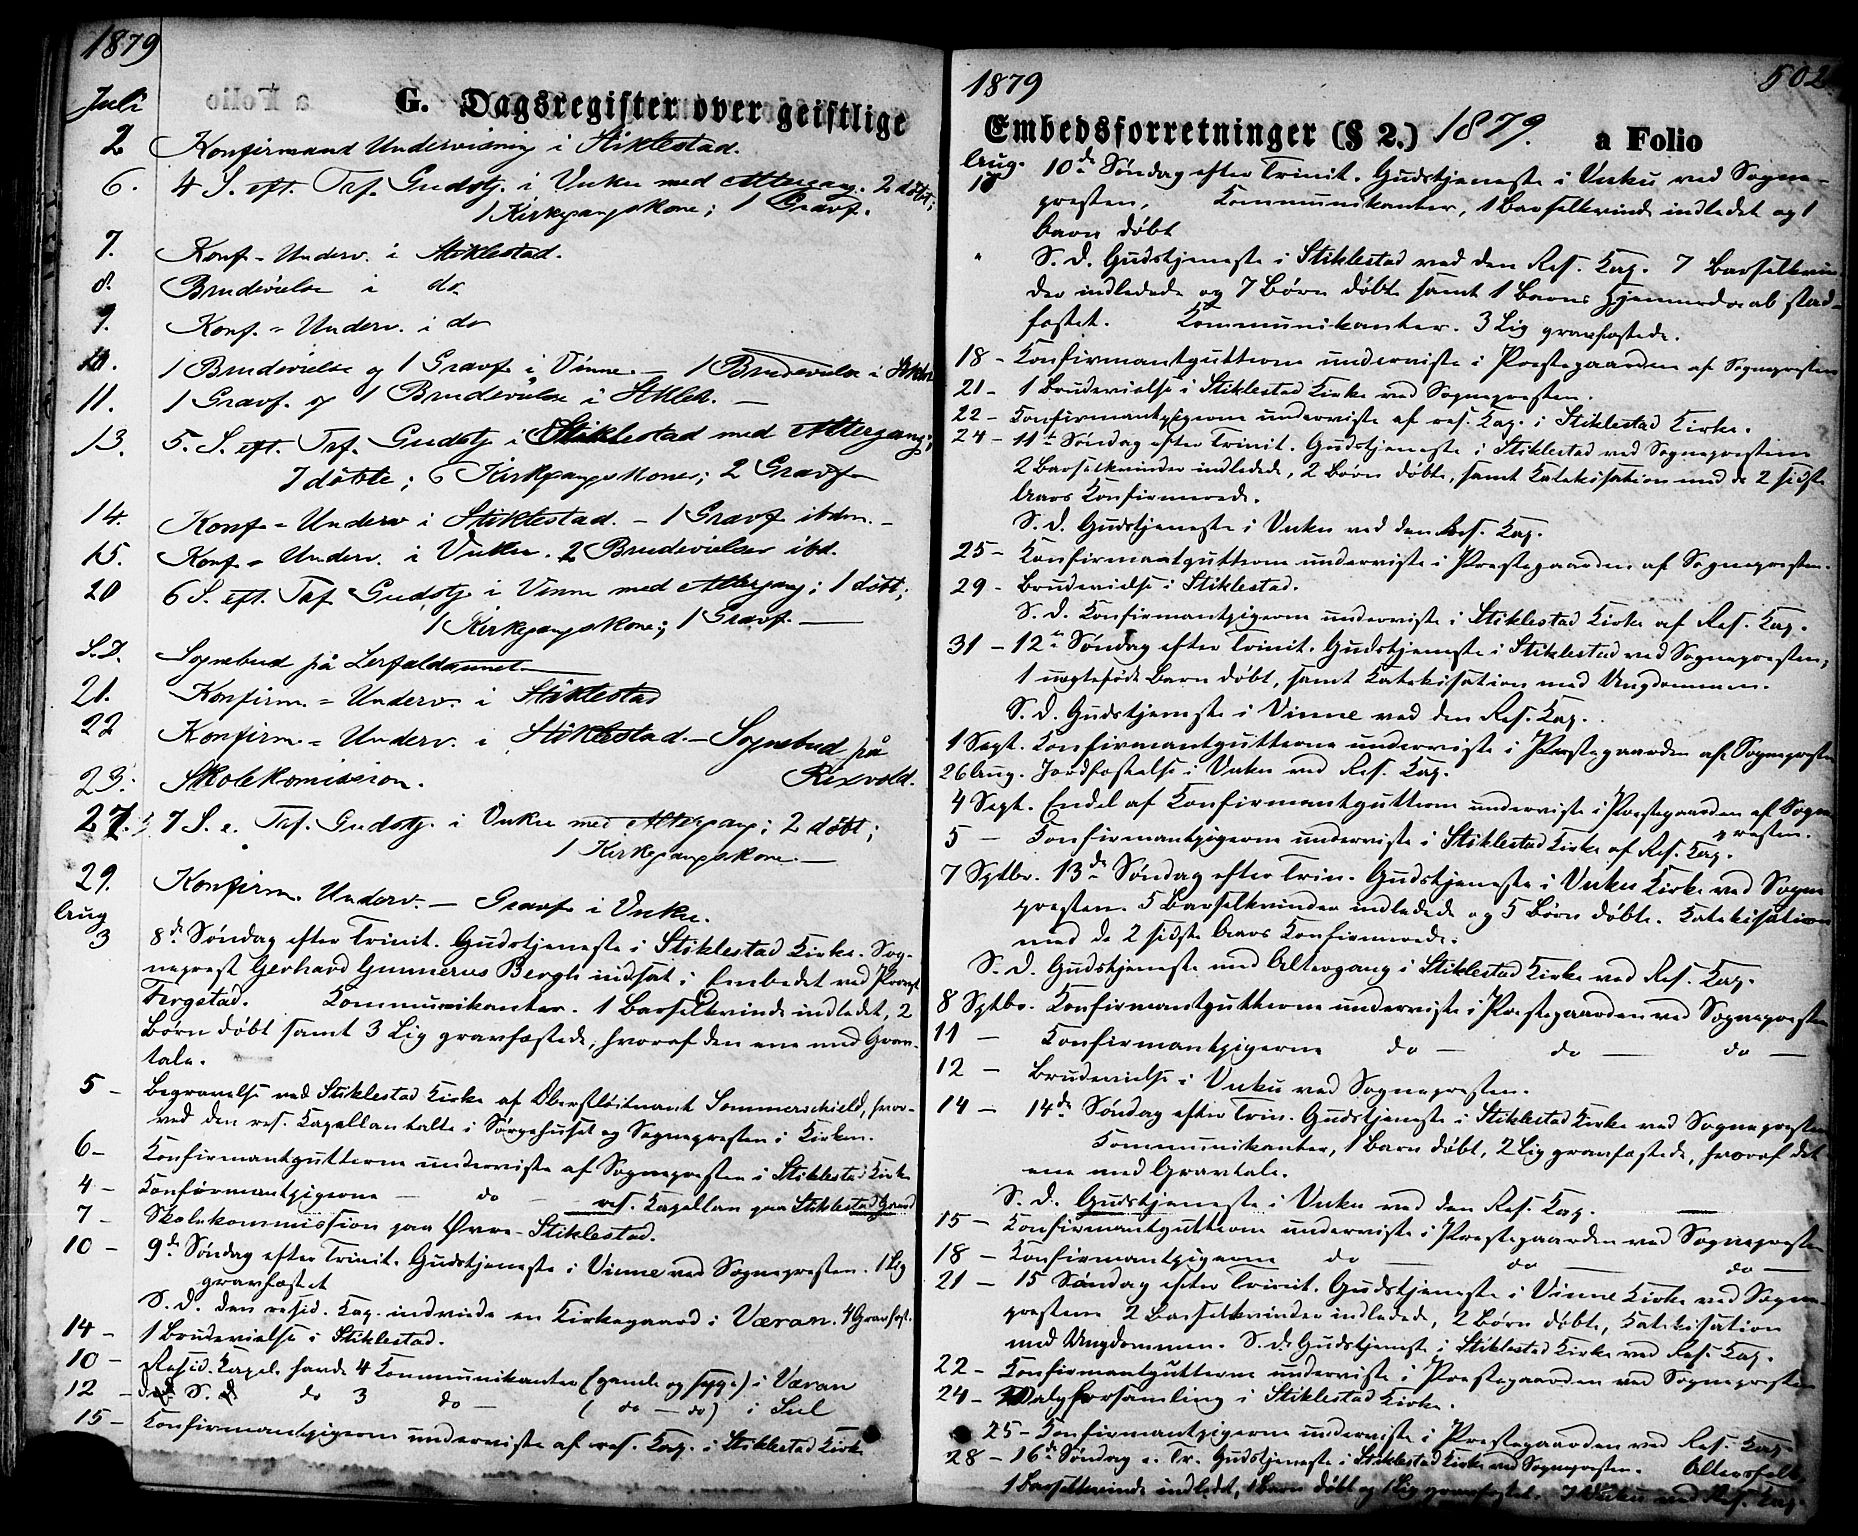 1879
Juli
G. Dagsregister over geistlige
2 Konfirmand Undervisning i Stiklestad.
6. 4 S. eft. Tref. Gudstj. i Vuku med Altergang. 2 døbt;
1 Kirkegangskone; 1 Gravf.
7. Konf.-Underv. i Stiklestad.
8. Brudevielse i do.
9. Konf.=Underv. i do
10. 1 Brudevielse og 1 Gravf. i Vinne. — 1 Brudevielse i Stiklest.
11. 1 Gravf. og 1 Brudevielse i Stklest. —
13. 5. S. eft. Tref. Gudstj. i Stiklestad med Altergang;
7 døbte; 6 Kirkegangskoner; 2 Gravf.
14. Konf.=Underv. i Stiklestad. — 1 Gravf. ibdm. —
15. Konf.=Underv. i Vuku. 2 Brudevielser ibd.
20 6 S. eft. Tref. Gudstj. i Vinne med Altergang; 1 døbt;
1 Kirkegangskone; 1 Gravf. —
S.D. Sognebud på Lerfaldaunet
21. Konfirm.=Underv. i Stiklestad
22 Konfirm.=Underv. i Stiklestad. — Sognebud på
23. Skolekomission. Rexvold.
27. 7 S. e. Tref. Gudstj. i Vuku med Altergang; 2 døbt;
1 Kirkegangskone. —
29. Konfirm. Underv. — Gravf. i Vuku.
Aug
3 8de Søndag efter Trinit. Gudstjeneste i Stiklestad Kirke. Sog-
neprest Gerhard Gunnerus Bergh indsat i Embedet ved Provst
Fergstad. Kommunikanter. 1 Barselkvinde indledet, 2
Børn døbt samt 3 Lig gravfæstede, hvoraf den ene med Grav-
tale.
5 – Begravelse ved Stiklestad Kirke af Oberstløitnant Sommerschield, hvor-
ved den res. Kapellan talte i Sørgehuset og Sognepresten i Kirken.
6 – Konfirmantgutterne underviste af Sognepresten i Stiklestad Kirke
4 – Konfirmantpigerne — do — res. Kapellan paa Stiklestad Gaard
7 – Skolekommission paa Øvre-Stiklestad.
10 – 9de Søndag efter Trinit. Gudstjeneste i Vinne ved Sognepresten. 1 Lig
gravfæstet
S. d. den resid. Kap. indviede en Kirkegaard i Væran. 4 Gravfæst.
14 – 1 Brudevielse i Stiklestad.
10 – Resid. Kapel. havde 4 Kommunikanter (gamle og syge) i Væran
12 – S. do 3 do — (do — do) i Sul
15 – Konfirmantpigerne underviste af res. Kap. i Stiklestad Kirke
1879
502
Embedsforretninger (§ 2.) 1879. a Folio
Aug.
10 10de Søndag efter Trinit. Gudstjeneste i Vuku ved Sogne-
presten, Kommunikanter, 1 Barselkvinde indledet og 1
Barn døbt
" S. d. Gudstjeneste i Stiklestad ved den Res. Kap. 7 Barselkvin-
der indledede og 7 Børn døbte samt 1 Barns Hjemmedaab stad-
fæstet. Kommunikanter. 3 Lig gravfæstede.
18 – Konfirmantgutterne underviste i Præstegaarden af Sognepresten
21 – 1 Brudevielse i Stiklestad Kirke ved Sognepresten.
22 – Konfirmantpigerne underviste af res. Kap. i Stiklestad Kirke.
24 – 11te Søndag efter Trinit. Gudstjeneste i Stiklestad ved Sognepresten
2 Barselkvinder indledede, 2 Børn døbte, samt Katekisation med de 2 sidste
Aars Konfirmerede.
S. d. Gudstjeneste i Vuku ved den Res. Kap.
25 – Konfirmantgutterne underviste i Prestegaarden af Sognepresten.
29 – Brudevielse i Stiklestad.
S. d. Konfirmantpigerne underviste i Stiklestad Kirke af Res. Kap.
31 – 12te Søndag efter Trinit. Gudstjeneste i Stiklestad ved Sognepresten,
1 uægtefødt Barn døbt, samt Katekisation med Ungdommen.
S. d. Gudstjeneste i Vinne ved den Res. Kap.
1 Sept. Konfirmantgutterne underviste i Prestegaarden af Sognepresten
26 Aug. Jordfæstelse i Vuku ved Res. Kap.
4 Sept. Endel af Konfirmantgutterne underviste i Prestegaarden af Sogne-
presten.
5 — Konfirmantpigerne underviste i Stiklestad Kirke af Res. Kap.
7 Sptbr. 13de Søndag efter Trin. Gudstjeneste i Vuku Kirke ved Sogne-
presten. 5 Barselkvinder indledede og 5 Børn døbte. Katekisation
med de 2 sidste Aars Konfirmerede.
S. D. Gudstjeneste med Altergang i Stiklestad Kirke ved Res. Kap.
8 Sptbr. Konfirmantgutterne underviste i Prestegaarden ved Sognepresten
11 — Konfirmantpigerne do — do — do —
12 — Brudevielse i Vuku ved Sognepresten.
14 — 14de Søndag efter Trin. Gudstjeneste i Stiklestad Kirke ved Sognepresten
Kommunikanter, 1 Barn døbt, 2 Lig gravfæstede, hvoraf det
ene med Gravtale.
S. d. Gudstjeneste i Vuku ved den Res. Kap.
15 – Konfirmantgutterne underviste i Prestegaarden ved Sognepresten
18 – Konfirmantpigerne do — do — do —
21 – 15 Søndag efter Trinit. Gudstjeneste i Vinne Kirke ved Sogne-
presten 2 Barselkvinder indledede, 2 Børn døbte, Katekisation
med Ungdommen. S. d. Gudstjeneste i Stiklestad Kirke ved Res. Kap.
22 – Konfirmantgutterne underviste i Prestegaarden ved Sognepresten
24 – Valgforsamling i Stiklestad Kirke.
25 – Konfirmantpigerne underviste i Prestegaarden ved Res. Kap.
28 – 16de Søndag e. Tr. Gudstjeneste i Stiklestad Kirke ved Sognepresten.
1 Barselkvinde indledet, 1 Barn døbt og 1 Lig gravfæstet. I Vuku ved Res. Kap.